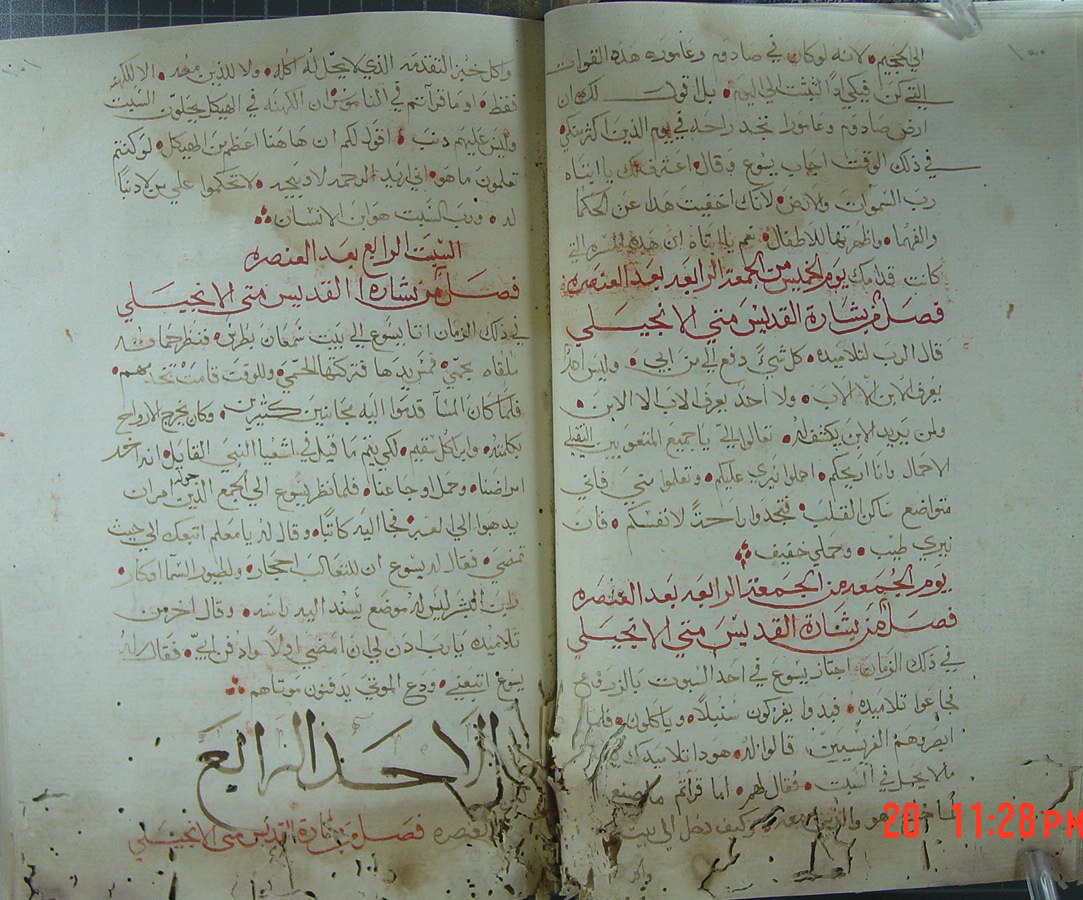 الى الجحيم • لانه لو كان في صادوم وعامورة هذه القوات
التي كن فيكي اذًا لثبتت الى اليوم • بل اقول لكن ان
ارض صادوم وعامورا تجد راحه في يوم الدين اكثر منكي
في ذلك الوقت اجاب يسوع وقال • اعترف لك يا ابتاه
رب السموات والارض • لانك اخفيت هذا عن الحكما
والفهما • واظهرتها للاطفال • نعم يا ابتاه ان هذه المسره التي
كانت قدامك يوم الخميس من الجمعة الرابعه بعد العنصره
فصل من بشارة القديس متي الانجيلي
قال الرب لتلاميذه • كل شيءٍ دفع الي من ابي • وليس احد
يعرف الابن الا الاب • ولا احد يعرف الاب الا الابن •
ولمن يريد الابن يكشف له • تعالوا اليّ يا جميع المتعوبين الثقيلي
الاحمال وانا اريحكم • احملوا نيري عليكم • وتعلموا مني فاني
متواضع ساكن القلب • فتجدوا راحةً لانفسكم • فان
نيري طيب • وحملي خفيف
يوم الجمعه من الجمعة الرابعه بعد العنصره
فصل من بشارة القديس متي الانجيلي
في ذلك الزمان اجتاز يسوع في احد السبوت بالزروع
فجاعوا تلاميذه • فبدوا يفركون سنبلًا • وياكلون • فلما
ابصروهم الفريسيين قالوا له • هودا تلاميذك
ما لا يحل في السبت • فقال لهم • اما قراتم ما صنع
هو والذين معه • كيف دخل الى بيت
20 11:28 PM
واكل خبز التقدمه الذي لا يحل له اكله • ولا للذين معه • الا للكهنة
فقط • او ما قراتم في الناموس ان الكهنه في الهيكل يحلون السبت
وليس عليهم ذنب • اقول لكم ان هاهنا اعظم من الهيكل • لو كنتم
تعلمون ما هو • اني اريد الرحمه لا دبيحه • لا تحكموا علي من لا دنبًا
له • ورب السبت هو ابن الانسان
السبت الرابع بعد العنصره
فصل من بشارة القديس متي الانجيلي
في ذلك الزمان اتا يسوع الى بيت سمعان بطرس • فنظر حماته
ملقاه بحمّي • فمس يدها فتركتها الحمّى • وللوقت قامت تخدمهم •
فلما كان المسآ قدموا اليه مجانين كثيرين • وكان يخرج الارواح
بكلمته • وابرا كل سقيم • لكي يتم ما قيل في اشعيا النبي القايل • انه اخذ
امراضنا • وحمل اوجاعنا • فلما نظر يسوع الى الجمع الذين حوله امر ان
يدهبوا الى العبر • فجا اليه كاتبًا • وقال له يا معلم اتبعك الى حيث
تمضي • فقال له يسوع ان للثعالب احجار • ولطيور السما اوكار •
وابن البشر ليس له موضع يسند اليه راسه • وقال اخر من
تلاميذه يا رب ادن لي ان امضي اولًا وادفن ابي • فقال له
يسوع اتبعني • ودع الموتى يدفنون موتاهم
الاحد الرابع
العنصره فصل من بشارة القديس متي الانجيلي